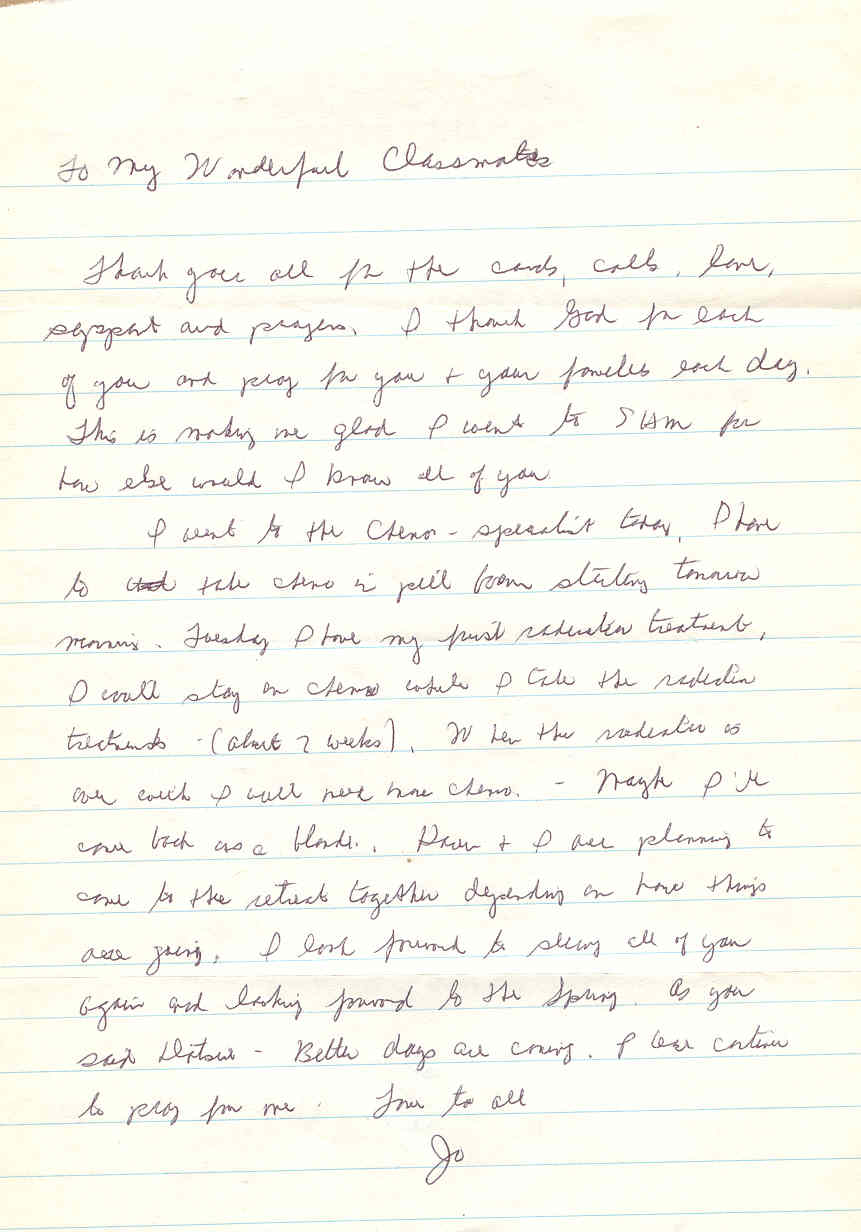 To My Wonderful Classmates
Thank you all for the cards, calls, love,
support and prayers. I thank God for each
of you and pray for you + your families each day.
This is making me glad I went to SHAM for
how else would I know all of you
I went to the Chemo - specialist today, I have
to take chemo in pill form starting tomorrow
morning. Tuesday I have my first radiation treatment,
I will stay on chemo while I take the radiation
treatments - (about 7 weeks). When the radiation is
over with I will need more chemo. - Maybe I'll
come back as a blonde. + I are planning to
come to the retreat together depending on how things
are going. I look forward to seeing all of you
again and looking forward to the Spring. As you
said - Better days are coming. Please continue
to pray for me. Love to all
Jo